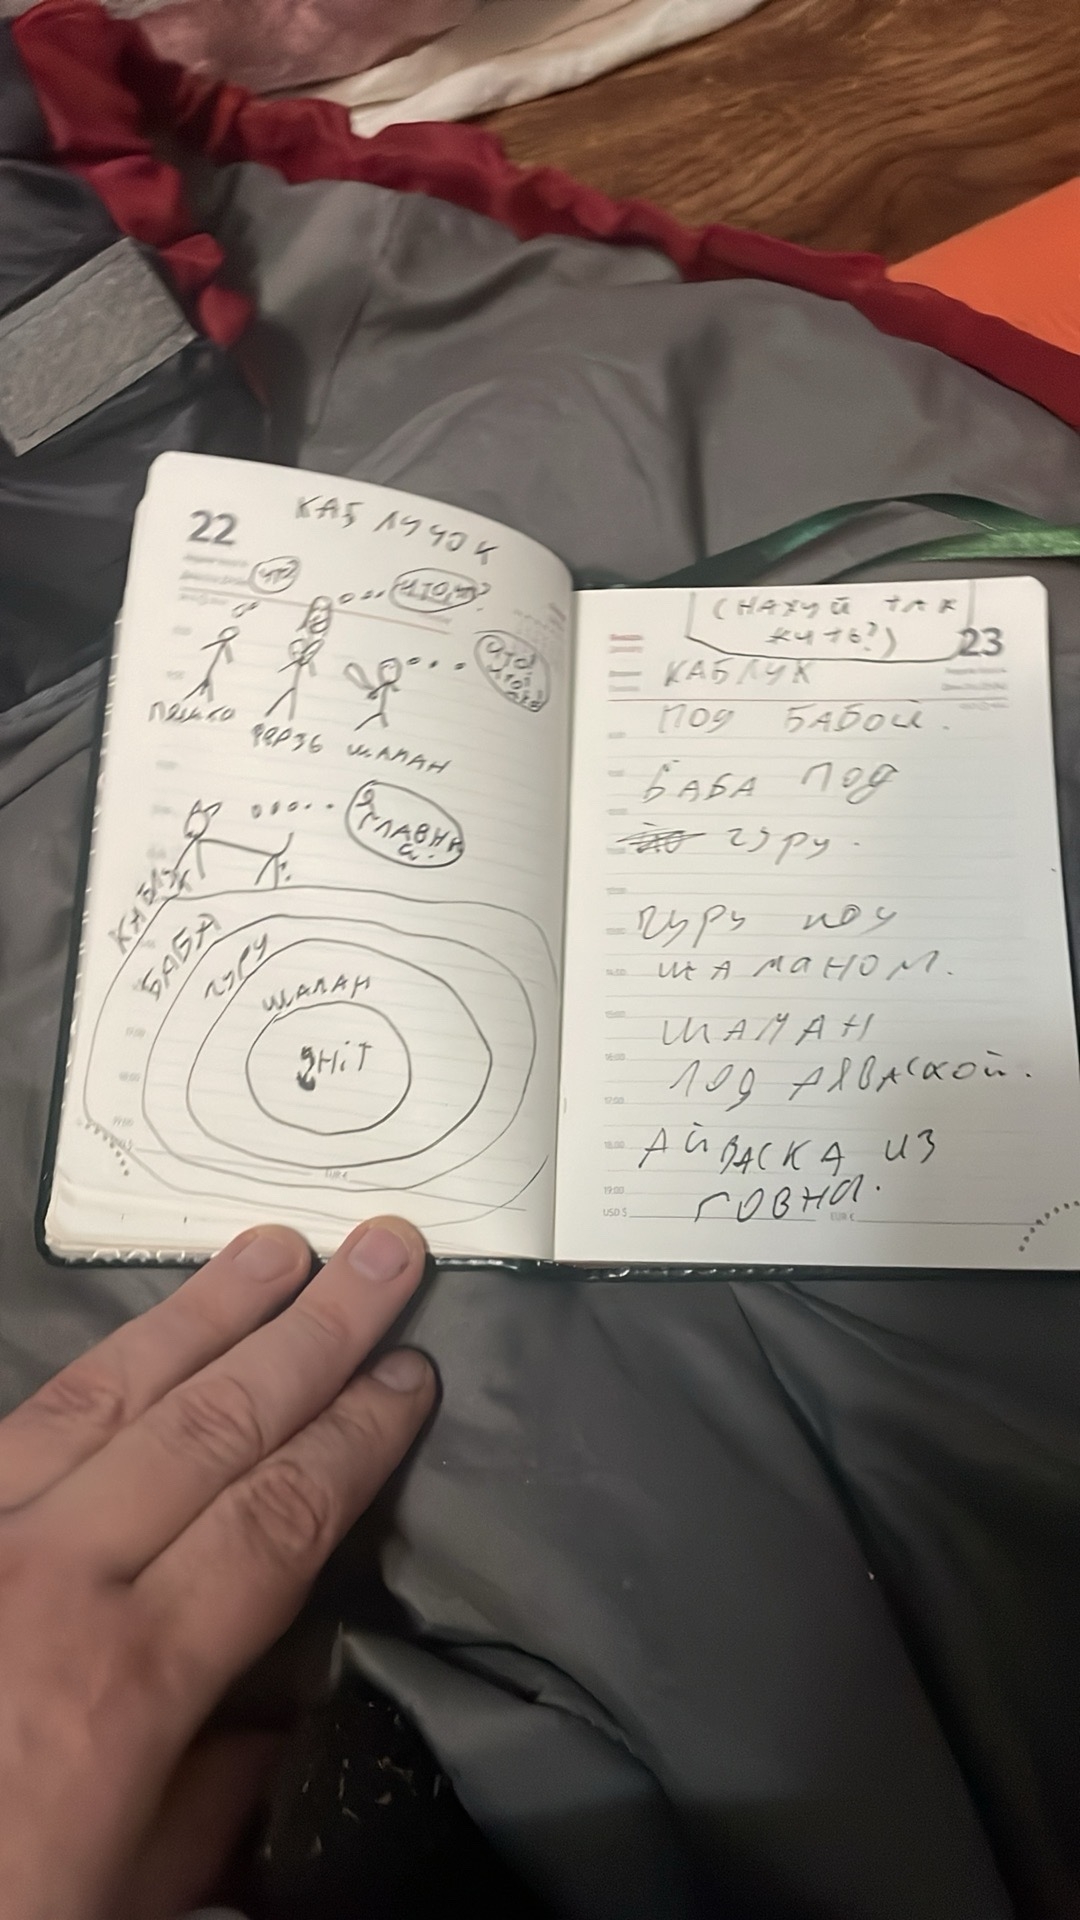 22
КАБЛУЧОК
ЧТО?
ЧТО, ЧТО?
ЧТО!
ПЕШКА
ФЕРЗЬ ШАМАН
Я
ГЛАВНА
Я.
КАБЛУК
БАБА
ГУРУ
ШАМАН
SHiT
EUR €
(НАХУЙ ТАК
ЖИТЬ?)
23
КАБЛУК
ПОД БАБОЙ.
БАБА ПОД
ГУРУ.
ГУРУ ПОД
ШАМАНОМ.
ШАМАН
ПОД АЯВАСКОЙ.
АЙВАСКА ИЗ
ГОВНА.
19:00
USD $ EUR €